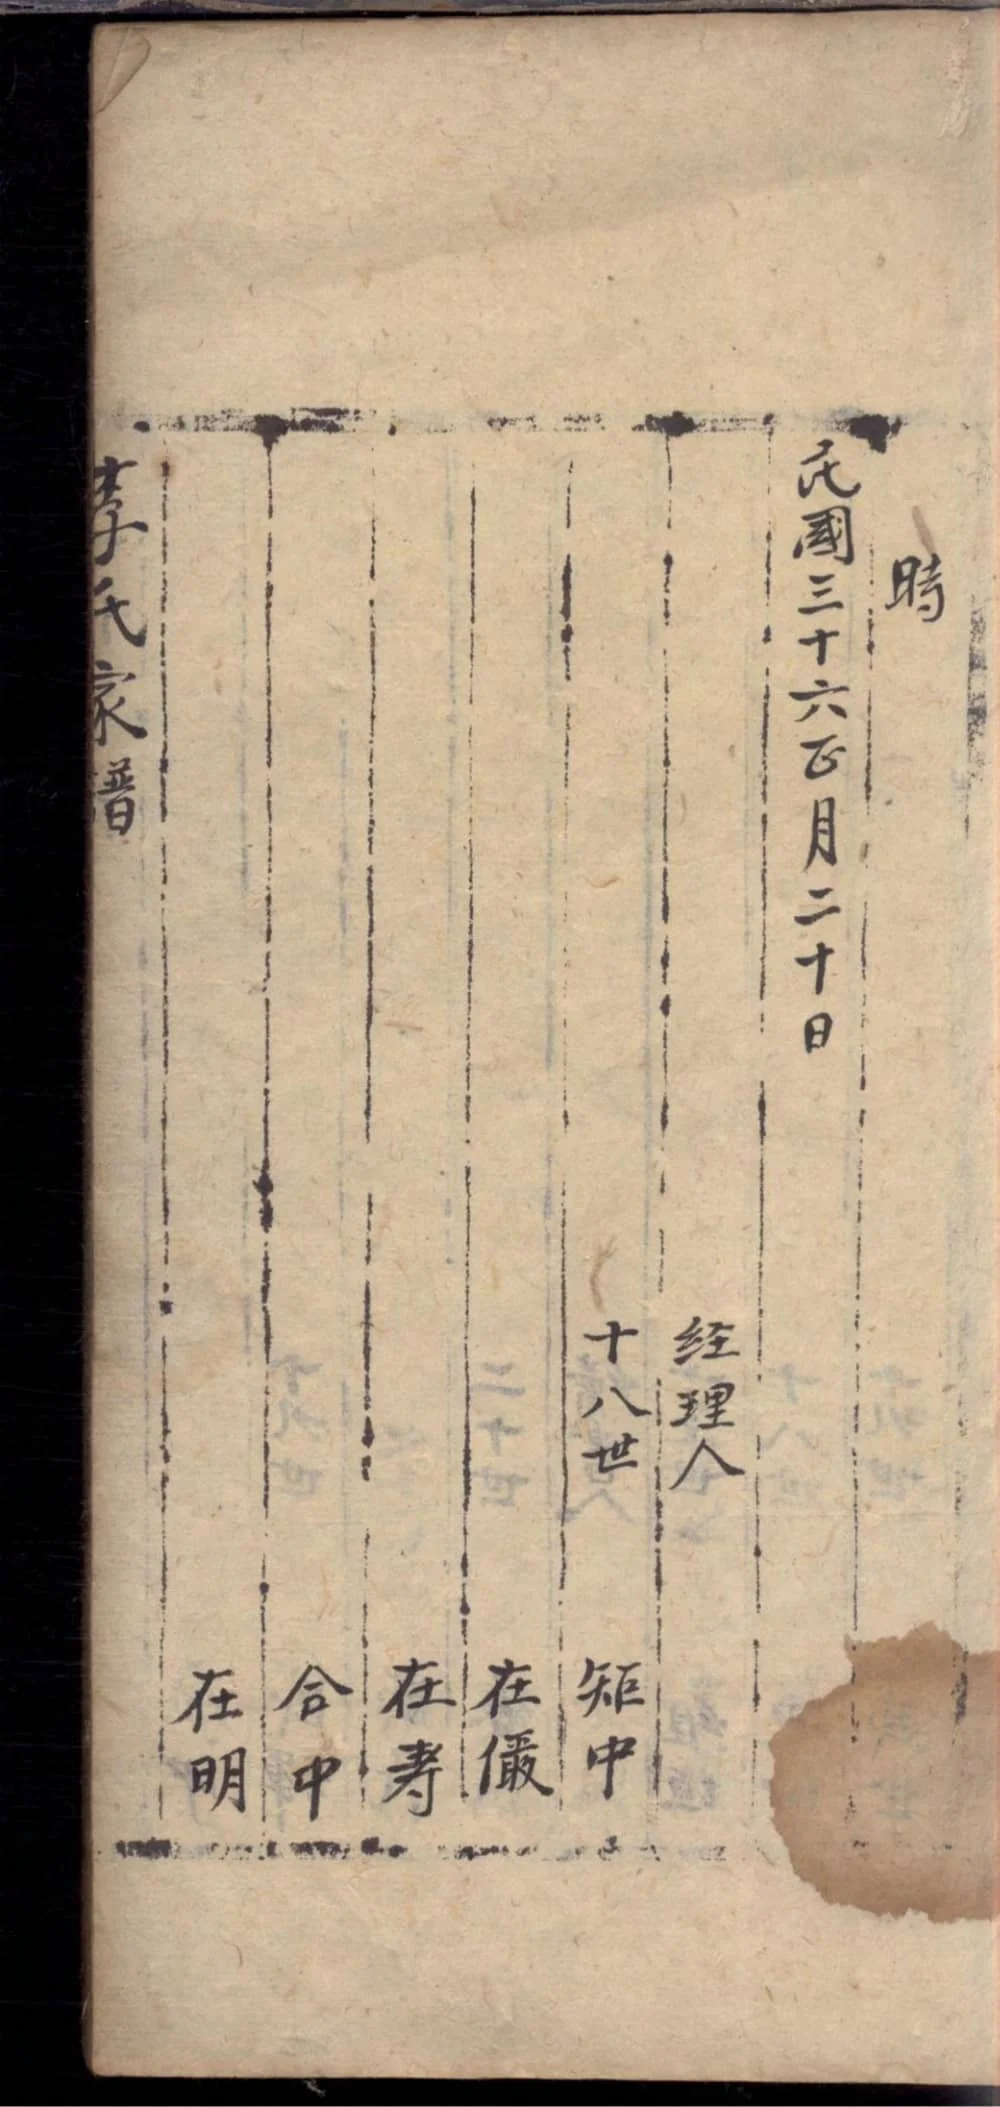 時
民國三十六正月二十日
经理人
十八世 矩中
在儼
在寿
合中
在明
李氏家譜